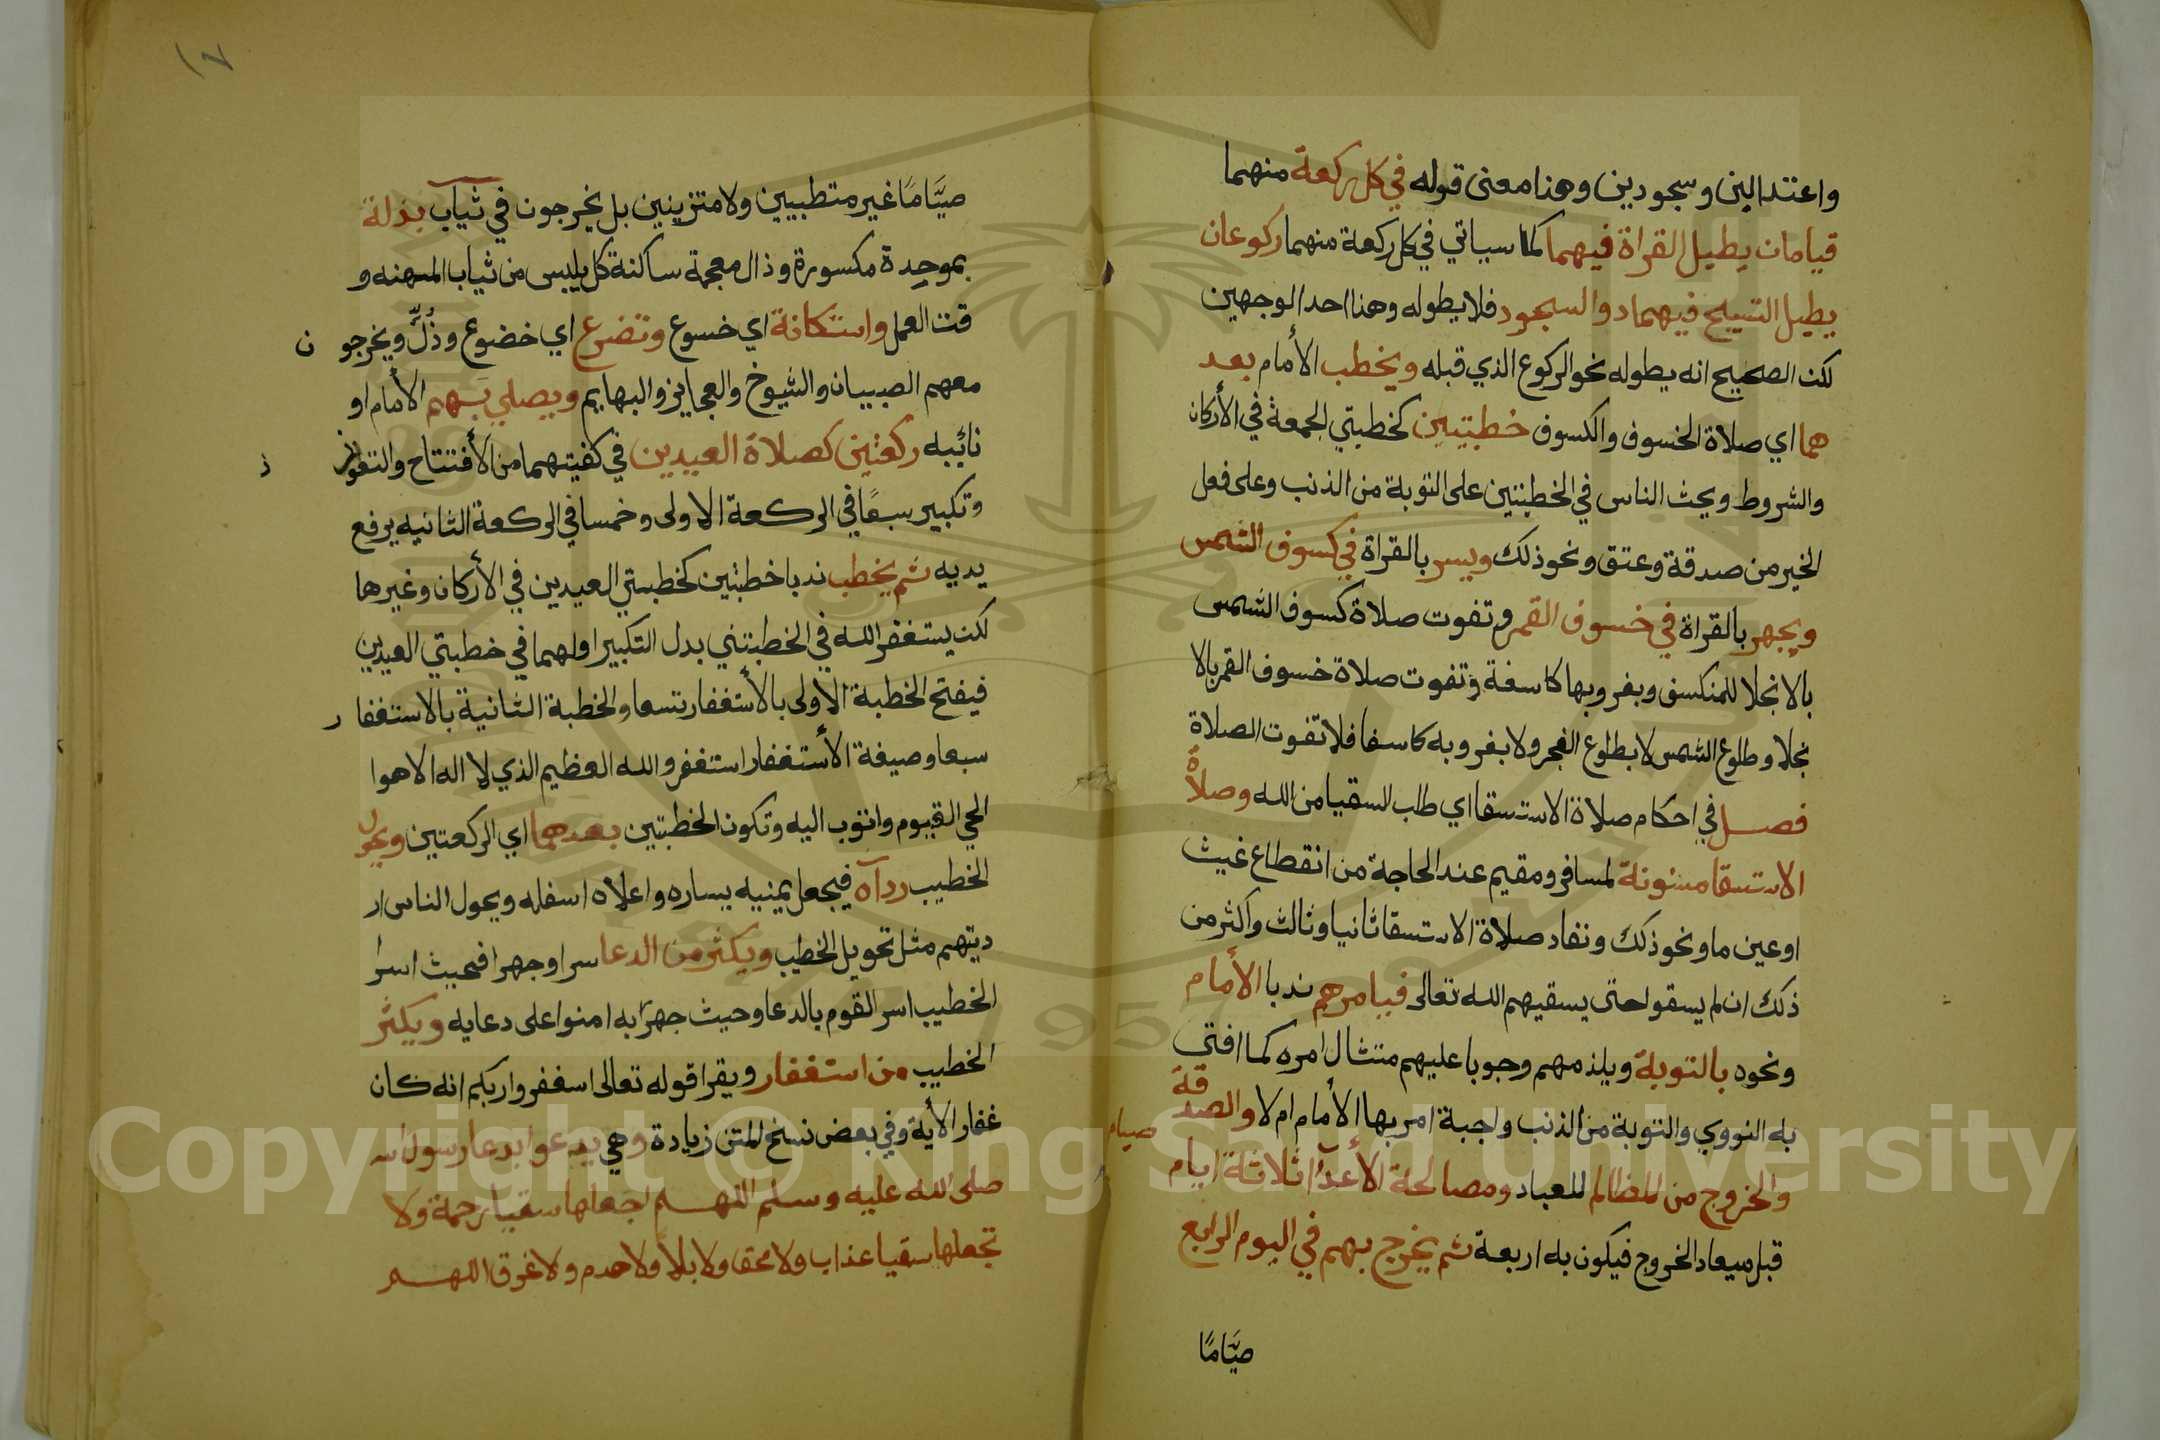 واعتدالين وسجودين وهذا معنى قوله في كل ركعة منهما
قيامان يطيل القراة فيهما كما سياتي في كل ركعة منهما ركوعان
يطيل التسبيح فيهما دو السجود فلا يطوله وهذا احد الوجهين
لكن الصحيح انه يطوله نحو الركوع الذي قبله ويخطب الأمام بعد
هما اي صلاة الخسوف والكسوف خطبتين كخطبتي الجمعة في الأركان
والشروط ويحث الناس في الخطبتين على التوبة من الذنب وعلى فعل
الخير من صدقة وعتق ونحو ذلك ويسر بالقراة في كسوف الشمس
ويجهر بالقراة في خسوف القمر وتفوت صلاة كسوف الشمس
بالانجلا للمنكسف وبغروبها كاسفة وتفوت صلاة خسوف القمر بالا
نجلا وطلوع الشمس لا بطلوع الفجر ولا بغروبه كاسفا فلا تفوت الصلاة
فصل في احكام صلاة الاستسقا اي طلب السقيا من الله وصلاة
الاستسقا مسنونة لمسافر ومقيم عند الحاجة من انقطاع غيث
او عين ما ونحو ذلك وتعاد صلاة الاستسقا ثانيا وثالث واكثر من
ذلك ان لم يسقوا حتى يسقيهم الله تعالى فيامرهم ندبا الأمام
ونحوه بالتوبة ويلزمهم وجوبا عليهم متثال امره كما افتى
به النووي والتوبة من الذنب واجبة امر بها الأمام ام لا والصدقة
صيام
والخروج من المظالم للعباد ومصالحة الأعدآ ثلاثة ايام
قبل ميعاد الخروج فيكون به اربعة ثم يخرج بهم في اليوم الرابع
صيَّامًا
١٧
صيَّامًا غير متطيبين ولا متزينين بل يخرجون في ثياب بذلة
بموحدة مكسورة وذال معجمة ساكنة كل يلبس من ثياب المهنه و
قت العمل واستكانة اي خسوع وتضرع اي خضوع وذُلٌّ ويخرجون
معهم الصبيان والشيوخ والعجايز والبهايم ويصلي بهم الأمام او
نائبه ركعتين كصلاة العيدين في كفيتهما من الأفتتاح والتعوذ
وتكبير سبعًا في الركعة الاولى وخمسا في الركعة الثانيه يرفع
يديه ثم يخطب ندبا خطبتين كخطبتي العيدين في الأركان وغيرها
لكن يستغفر الله في الخطبتني بدل التكبير اولهما في خطبتي العيدين
فيفتح الخطبة الأولى بالأستغفار تسعا والخطبة الثانية بالاستغفار
سبعا وصيغة الأستغفار استغفرو الله العظيم الذي لا اله الا هوا
الحي القيوم واتوب اليه وتكون الخطبتين بعدهما اي الركعتين ويحول
الخطيب ردآه فيجعل يمنيه يساره واعلاه اسفله ويحول الناس ار
ديتهم مثل تحويل الخطيب ويكثر من الدعا سرا وجهرا فحيث اسرا
الخطيب اسر القوم بالدعا وحيث جهرا به امنوا على دعايه ويكثر
الخطيب من استغفار ويقرا قوله تعالى اسغفروا ربكم انه كان
غفار الأية وفي بعض نسخ المتن زيادة وهي يدعوا بدعا رسول الله
صلى الله عليه وسلم اللهم اجعلها سقيا رحمة ولا
تجعلها سقيا عذاب ولا محقا ولا بلا ولا هدم ولا غرق اللهم
Copyright © King Saud University
1957